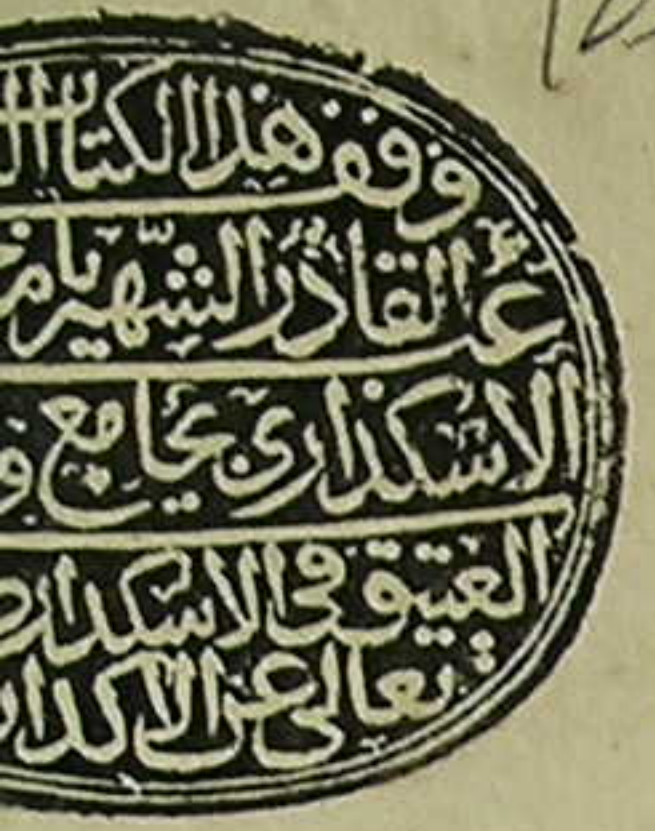 وقف هذا الكتاب
عبد القادر الشهير بامين
الاسكداري بجامع
العتيق في الاسكدار
تعالى عن الاكدار